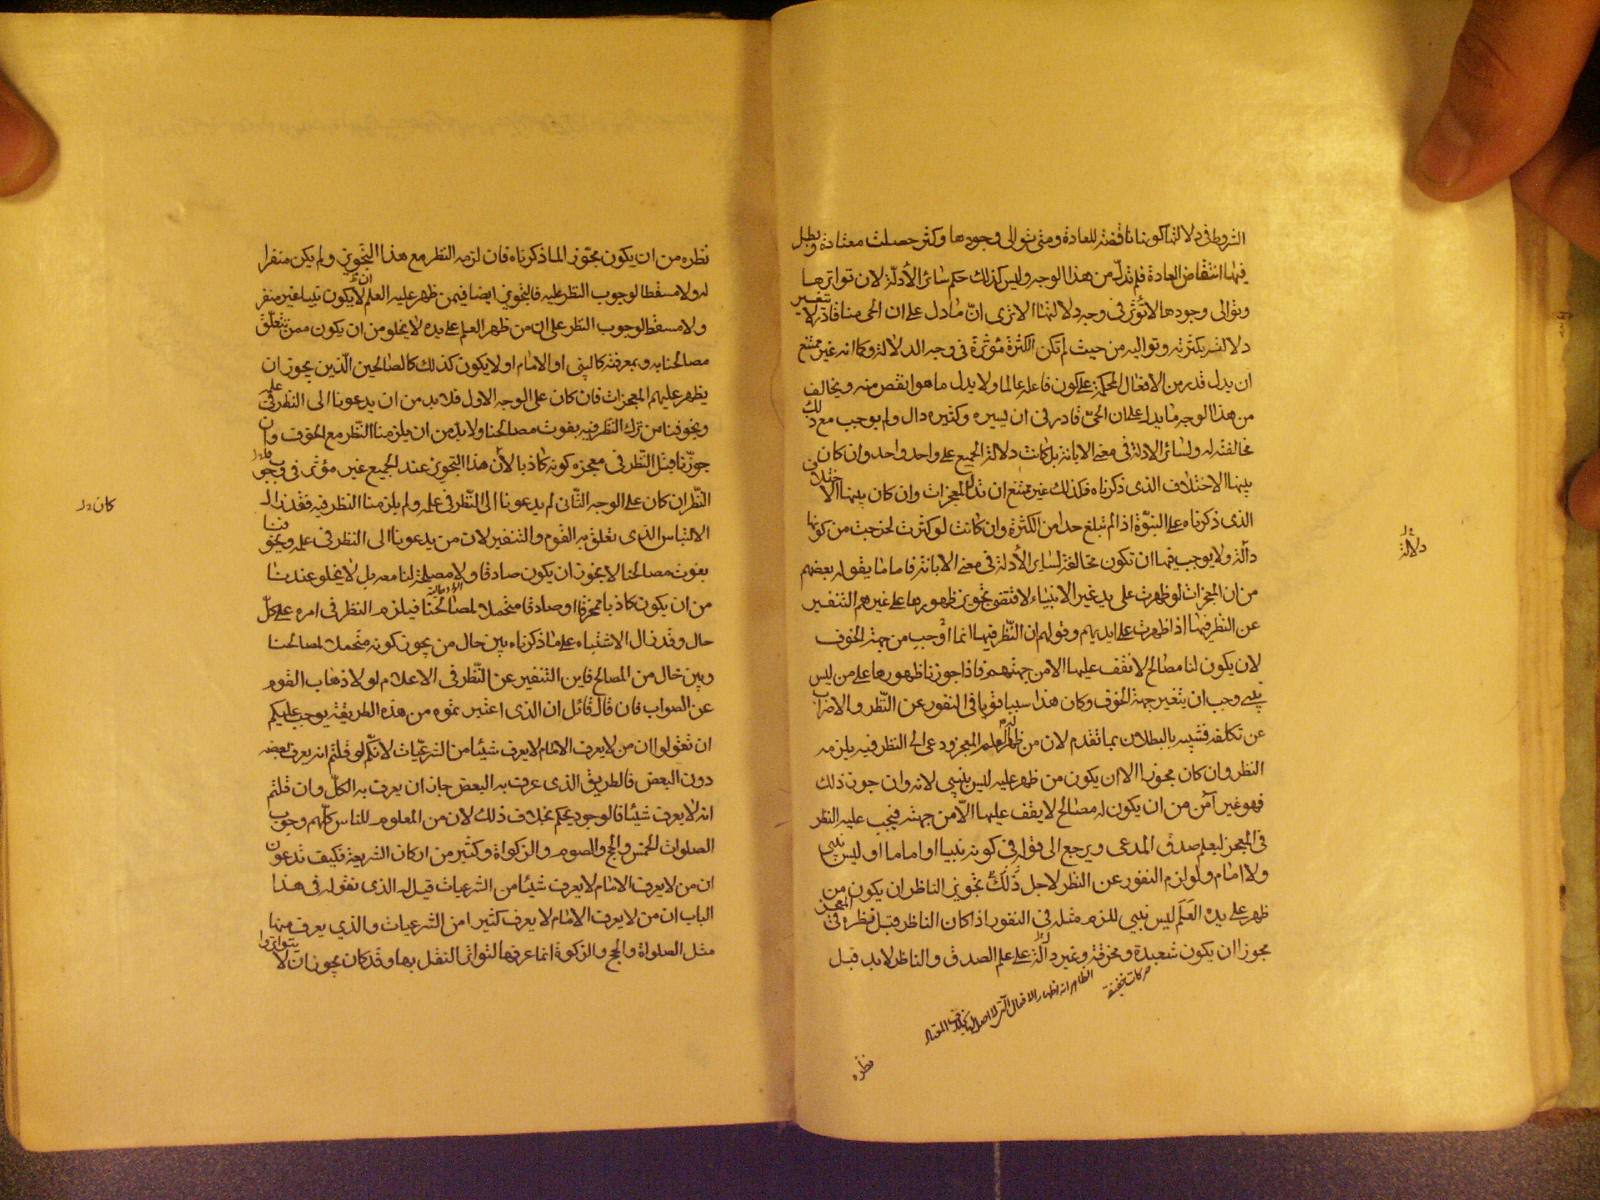 الشروط فى دلالتها كونها ناقضة للعادة ومتى توالى وجودها وكثر حصلت معتادة وبطل
فيها انتقاض العادة فلم تدل من هذا الوجه وليس كذلك حكم سائر الأدلة لان تواترها
وتوالى وجودها لا تؤثر فى وجه دلالتها الا ترى ان ما دل على ان الحى منا قادر لا يتغير
دلالته بكثرته وتواليه من حيث لم تكن الكثرة مؤثرة فى وجه الدلالة وكما انه غير ممتنع
ان يدل قدر من الافعال المحكمة على كون فاعله عالما ولا يدل ما هو انقص منه ويخالف
من هذا الوجه ما يدل على ان الحى قادر فى ان يسيره وكثيره دال ولم يوجب مع ذلك
مخالفته له ولسائر الادلة فى معنى الابانة بل كانت دلالة الجميع على واحد واحد وان كان
بينها الاختلاف الذى ذكرناه فكذلك غير ممتنع ان تدل المعجزات وان كان بينها الاختلاف
الذى ذكرناه على النبوة اذا لم تبلغ حدا من الكثرة وان كانت لو كثرت لخرجت من كونها
دالة ولا يوجب فيها ان تكون مخالفة لسائر الأدلة فى معنى الابانة فاما ما يقوله بعضهم
من ان المعجزات لو ظهرت على يد غير الانبياء لاقتضى تجويز ظهورها على غيرهم التنفير
عن النظر فيها اذا ظهرت على ايديهم وقولهم ان النظر فيها انما اوجب من جهة الخوف
لان يكون لنا مصالح لا نقف عليها الا من جهتهم فاذا جوزنا ظهورها على من ليس
بنبى وجب ان يتغير جهة الخوف وكان هذا سببا قويا فى النفور عن النظر والاضراب
عن تكلفه فشبيه بالبطلان بما تقدم لان من ظهر عليه المعجز ودعى الى النظر فيه يلزمه
النظر وان كان مجوزا الا ان يكون من ظهر عليه ليس بنبى لانه وان جوز ذلك
فهو غير آمن من ان يكون له مصالح لا يقف عليها الا من جهته فيجب عليه النظر
فى المعجز ليعلم صدق المدعى ويرجع الى قوله فى كونه نبيا او اماما او ليس بنبى
ولا امام ولو لزم النفور عن النظر لاجل ذلك تجويز الناظر ان يكون من
ظهر على يده العلم ليس بنبى للزم مثله فى النفور اذا كان الناظر قبل نظره فى المعجز
مجوزا ان يكون شعبدة ومخرقة وغير دالة على علم الصدق والناظر لا بد قبل
حركات خفيفة
الظاهر انه اظهار الافعال التى لا اصل لها
نظره
دلالة
نظره من ان يكون مجوزا لما ذكرناه فان لزمه النظر مع هذا التجويز ولم يكن منفرا
له ولا مسقطا لوجوب النظر عليه فالتجويز ايضا فيمن ظهر عليه العلم ان لا يكون نبيا غير منفر
ولا مسقط لوجوب النظر على ان من ظهر العلم على يده لا يخلو من ان يكون ممن تتعلق
مصالحنا به وبمعرفته كالنبى او الامام او لا يكون كذلك كالصالحين الذين يجوز ان
يظهر عليهم المعجزات فان كان على الوجه الاول فلا بد من ان يدعونا الى النظر فى علمه
ويخوفنا من ترك النظر فيه بفوت مصالحنا ولا بد من ان يلزمنا النظر مع الخوف وان
جوزنا قبل النظر فى معجزه كونه كاذبا لأن هذا التجويز عند الجميع غير مؤثر فى وجوب
النظر ان كان على الوجه الثانى لم يدعونا الى النظر فى علمه ولم يلزمنا النظر فيه فقد زال
الالتباس الذى تعلق به القوم والتنفير لان من يدعونا الى النظر فى علمه ويخوفنا
بفوت مصالحنا لا يجوز ان يكون صادقا ولا مصلحة لنا معه بل لا يخلو عندنا
من ان يكون كاذبا ممخرقا او صادقا متحملا لمصالحنا فيلزم النظر فى امره على كل
حال وقد زال الاشتباه على ما ذكرناه بين حال من يجوز كونه متحملا لمصالحنا
وبين خال من المصالح فاين التنفير عن النظر فى الاعلام لولا ذهاب القوم
عن الصواب فان قال قائل ان الذى اعتبرتموه من هذه الطريقة يوجب عليكم
ان تقولوا ان من لا يعرف الامام لا يعرف شيئا من الشرعيات لانكم لو قلتم انه يعرف بعضه
دون البعض فالطريق الذى عرف به البعض جاز ان يعرف به الكل وان قلتم
انه لا يعرف شيئا فالوجود يحكم بخلاف ذلك لان من المعلوم للناس كلهم وجوب
الصلوات الخمس والحج والصوم والزكواة وكثير من اركان الشريعة فكيف تدعون
ان من لا يعرف الامام لا يعرف شيئا من الشرعيات قيل له الذى نقوله فى هذا
الباب ان من لا يعرف الامام لا يعرف كثيرا من الشرعيات والذي يعرف منها
مثل الصلواة والحج والزكوة انما عرفها لتواتر النقل بها وقد كان يجوز ان لا يتواتروا
كان